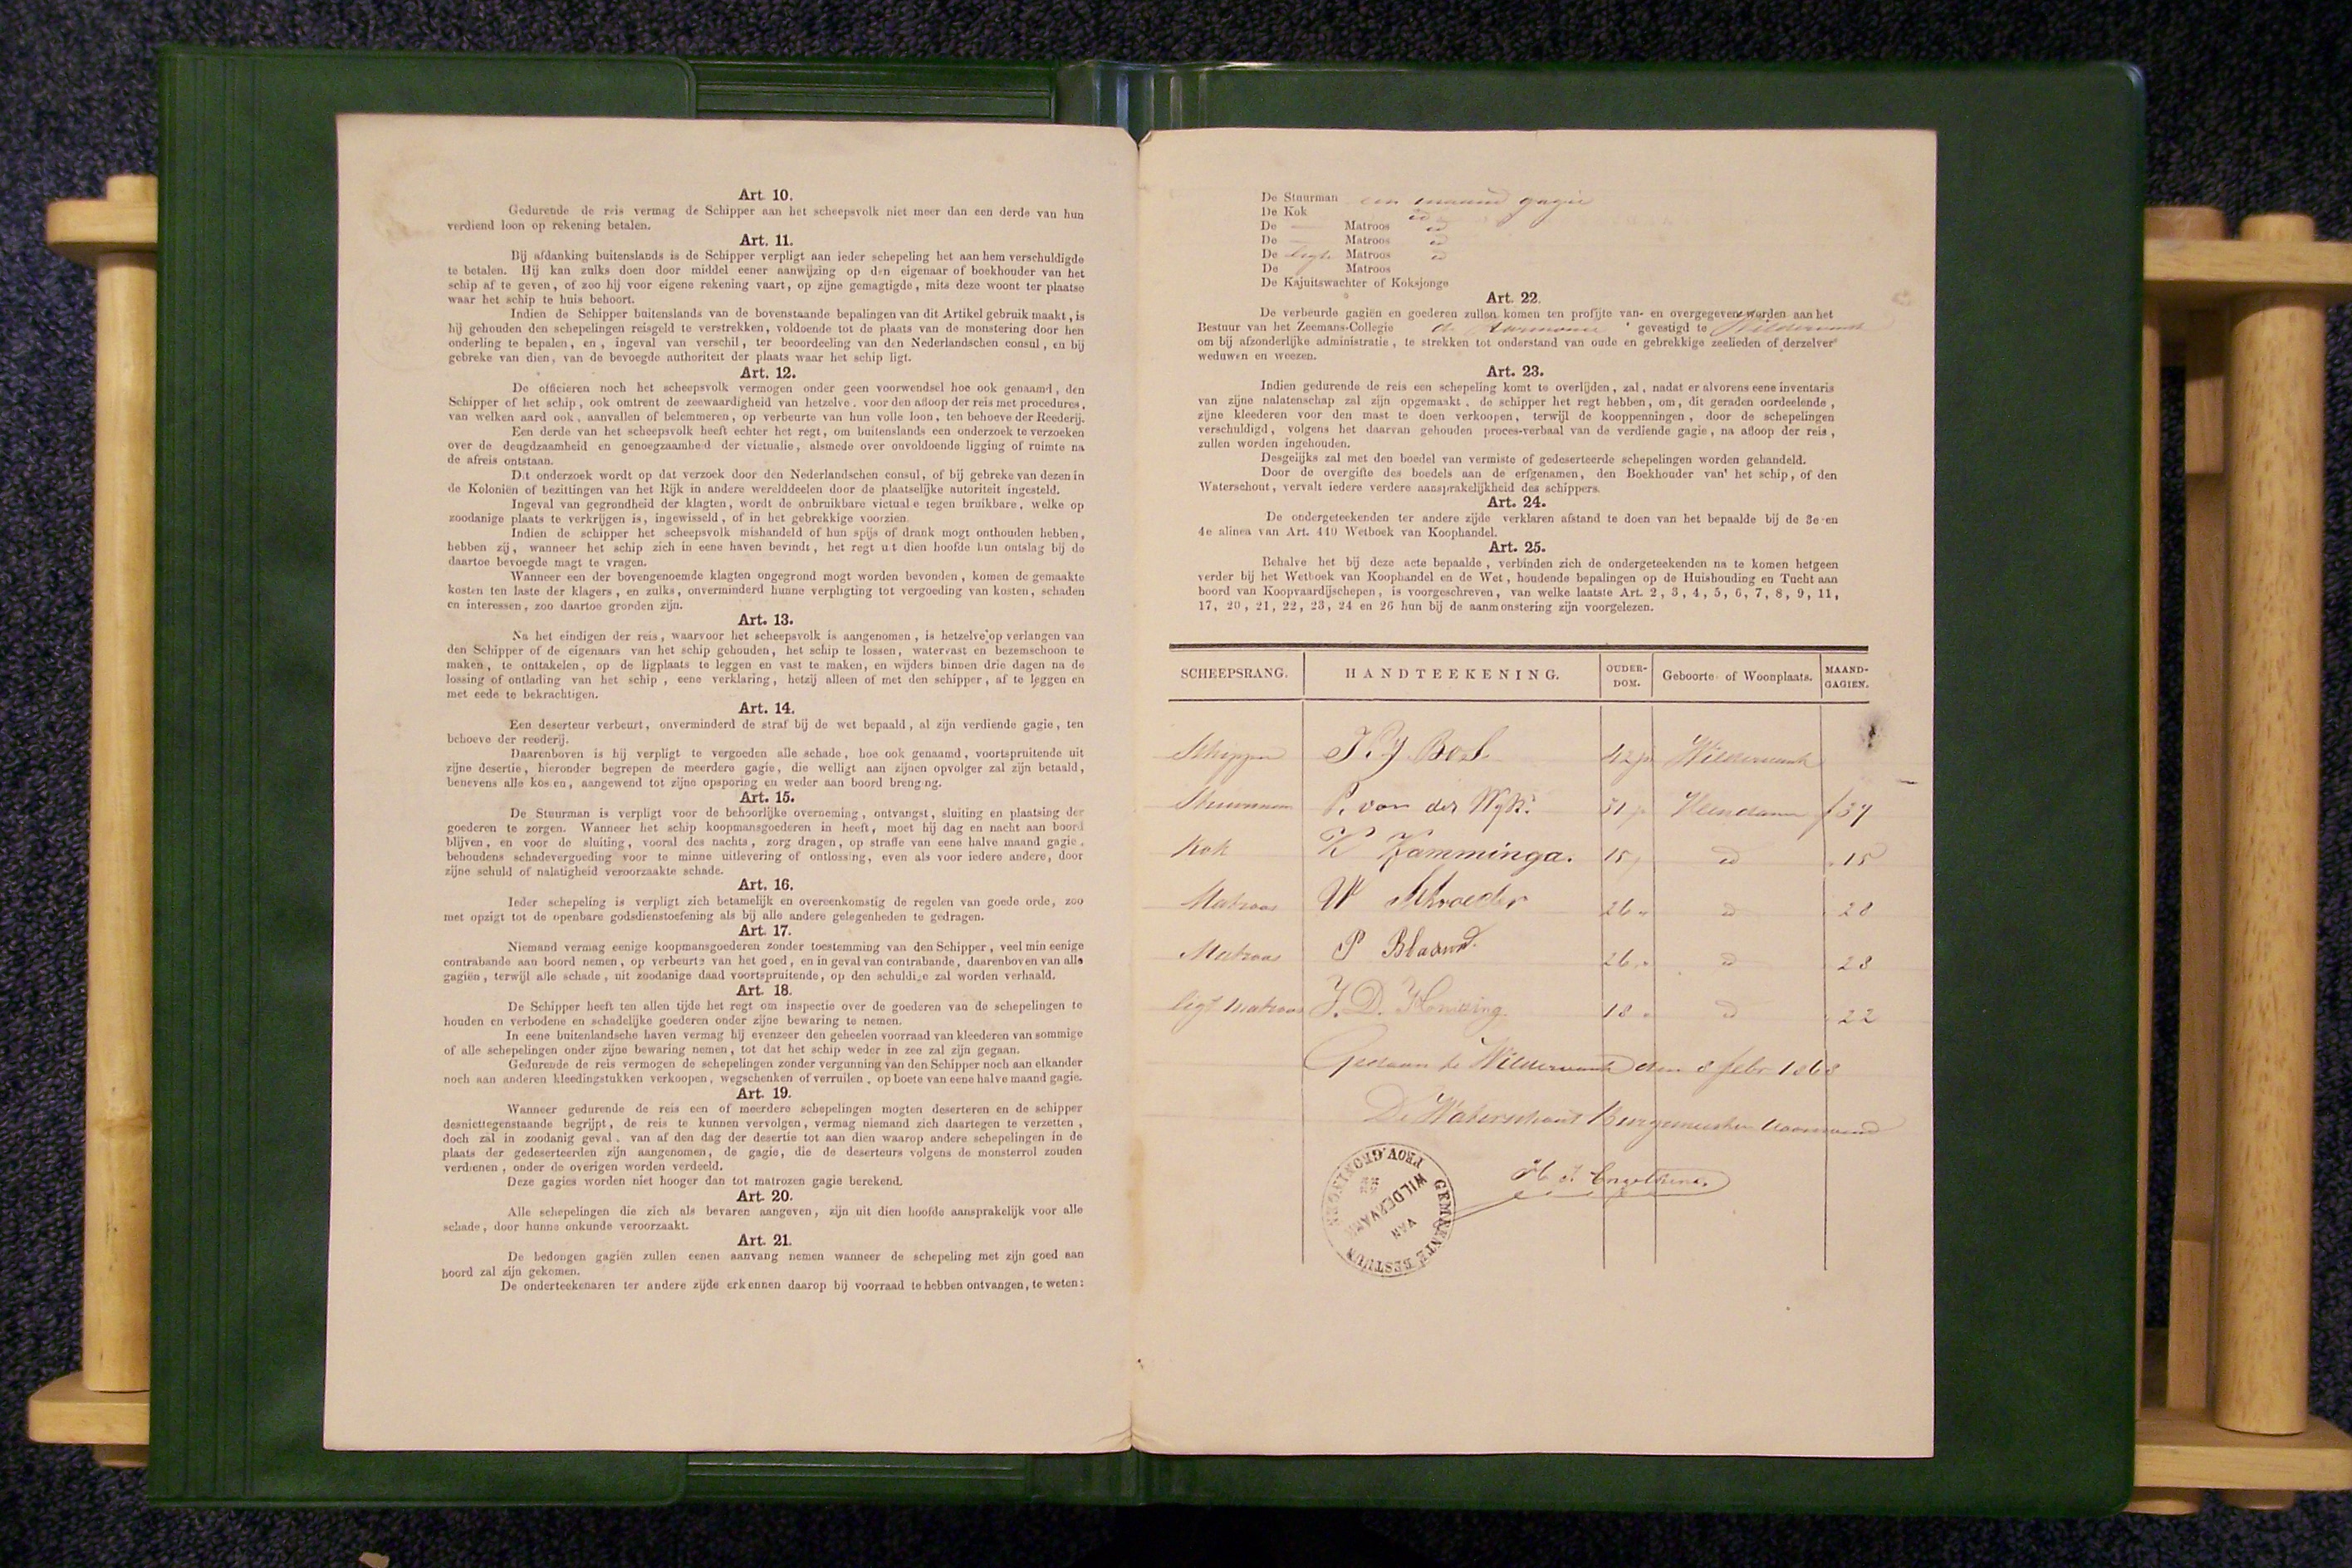 Art. 10.
Gedurende de reis vermag de Schipper aan het scheepsvolk niet meer dan een derde van hun
verdiend loon op rekening betalen.
Art. 11.
Bij afdanking buitenslands is de Schipper verpligt aan ieder schepeling het aan hem verschuldigde
te betalen. Hij kan zulks doen door middel eener aanwijzing op den eigenaar of boekhouder van het
schip af te geven, of zoo hij voor eigene rekening vaart, op zijne gemagtigde, mits deze woont ter plaatse
waar het schip te huis behoort.
Indien de Schipper buitenslands van de bovenstaande bepalingen van dit Artikel gebruik maakt, is
hij gehouden den schepelingen reisgeld te verstrekken, voldoende tot de plaats van de monstering door hen
onderling te bepalen, en, ingeval van verschil, ter beoordeeling van den Nederlandschen consul, en bij
gebreke van dien, van de bevoegde authoriteit der plaats waar het schip ligt.
Art. 12.
De officieren noch het scheepsvolk vermogen onder geen voorwendsel hoe ook genaamd, den
Schipper of het schip, ook omtrent de zeewaardigheid van hetzelve, voor den afloop der reis met procedures,
van welken aard ook, aanvallen of belemmeren, op verbeurte van hun volle loon, ten behoeve der Reederij.
Een derde van het scheepsvolk heeft echter het regt, om buitenslands een onderzoek te verzoeken
over de deugdzaamheid en genoegzaamheid der victualie, alsmede over onvoldoende ligging of ruimte na
de afreis ontstaan.
Dit onderzoek wordt op dat verzoek door den Nederlandschen consul, of bij gebreke van dezen in
de Koloniën of bezittingen van het Rijk in andere werelddeelen door de plaatselijke autoriteit ingesteld.
Ingeval van gegrondheid der klagten, wordt de onbruikbare victualie tegen bruikbare, welke op
zoodanige plaats te verkrijgen is, ingewisseld, of in het gebrekkige voorzien.
Indien de schipper het scheepsvolk mishandeld of hun spijs of drank mogt onthouden hebben,
hebben zij, wanneer het schip zich in eene haven bevindt, het regt uit dien hoofde hun ontslag bij de
daartoe bevoegde magt te vragen.
Wanneer een der bovengenoemde klagten ongegrond mogt worden bevonden, komen de gemaakte
kosten ten laste der klagers, en zulks, onverminderd hunne verpligting tot vergoeding van kosten, schaden
en interessen, zoo daartoe gronden zijn.
Art. 13.
Na het eindigen der reis, waarvoor het scheepsvolk is aangenomen, is hetzelve op verlangen van
den Schipper of de eigenaars van het schip gehouden, het schip te lossen, watervast en bezemschoon te
maken, te onttakelen, op de ligplaats te leggen en vast te maken, en wijders binnen drie dagen na de
lossing of ontlading van het schip, eene verklaring, hetzij alleen of met den schipper, af te leggen en
met eede te bekrachtigen.
Art. 14.
Een deserteur verbeurt, onverminderd de straf bij de wet bepaald, al zijn verdiende gagie, ten
behoeve der reederij.
Daarenboven is hij verpligt te vergoeden alle schade, hoe ook genaamd, voortspruitende uit
zijne desertie, hieronder begrepen de meerdere gagie, die welligt aan zijnen opvolger zal zijn betaald,
benevens alle kosten, aangewend tot zijne opsporing en weder aan boord brenging.
Art. 15.
De Stuurman is verpligt voor de behoorlijke overneming, ontvangst, sluiting en plaatsing der
goederen te zorgen. Wanneer het schip koopmansgoederen in heeft, moet hij dag en nacht aan boord
blijven, en voor de sluiting, vooral des nachts, zorg dragen, op straffe van eene halve maand gagie,
behoudens schadevergoeding voor te minne uitlevering of ontlossing, even als voor iedere andere, door
zijne schuld of nalatigheid veroorzaakte schade.
Art. 16.
Ieder schepeling is verpligt zich betamelijk en overeenkomstig de regelen van goede orde, zoo
met opzigt tot de openbare godsdienstoefening als bij alle andere gelegenheden te gedragen.
Art. 17.
Niemand vermag eenige koopmansgoederen zonder toestemming van den Schipper, veel min eenige
contrabande aan boord nemen, op verbeurte van het goed, en in geval van contrabande, daarenboven van alle
gagiën, terwijl alle schade, uit zoodanige daad voortspruitende, op den schuldige zal worden verhaald.
Art. 18.
De Schipper heeft ten allen tijde het regt om inspectie over de goederen van de schepelingen te
houden en verbodene en schadelijke goederen onder zijne bewaring te nemen.
In eene buitenlandsche haven vermag hij evenzeer den geheelen voorraad van kleederen van sommige
of alle schepelingen onder zijne bewaring nemen, tot dat het schip weder in zee zal zijn gegaan.
Gedurende de reis vermogen de schepelingen zonder vergunning van den Schipper noch aan elkander
noch aan anderen kleedingstukken verkoopen, wegschenken of verruilen, op boete van eene halve maand gagie.
Art. 19.
Wanneer gedurende de reis een of meerdere schepelingen mogten deserteren en de schipper
desniettegenstaande begrijpt, de reis te kunnen vervolgen, vermag niemand zich daartegen te verzetten,
doch zal in zoodanig geval, van af den dag der desertie tot aan dien waarop andere schepelingen in de
plaats der gedeserteerden zijn aangenomen, de gagie, die de deserteurs volgens de monsterrol zouden
verdienen, onder de overigen worden verdeeld.
Deze gagies worden niet hooger dan tot matrozen gagie berekend.
Art. 20.
Alle schepelingen die zich als bevaren aangeven, zijn uit dien hoofde aansprakelijk voor alle
schade, door hunne onkunde veroorzaakt.
Art. 21.
De bedongen gagiën zullen eenen aanvang nemen wanneer de schepeling met zijn goed aan
boord zal zijn gekomen.
De onderteekenaren ter andere zijde erkennen daarop bij voorraad te hebben ontvangen, te weten:
De Stuurman een maand gagie
De Kok id
De Matroos id
De Matroos id
De ligte Matroos id
De Matroos
De Kajuitswachter of Koksjonge
Art. 22.
De verbeurde gagiën en goederen zullen komen ten profijte van- en overgegeven worden aan het
Bestuur van het Zeemans-Collegie de Harmonie gevestigd te Wildervank
om bij afzonderlijke administratie, te strekken tot onderstand van oude en gebrekkige zeelieden of derzelver
weduwen en weezen.
Art. 23.
Indien gedurende de reis een schepeling komt te overlijden, zal, nadat er alvorens eene inventaris
van zijne nalatenschap zal zijn opgemaakt, de schipper het regt hebben, om, dit geraden oordeelende,
zijne kleederen voor den mast te doen verkoopen, terwijl de kooppenningen, door de schepelingen
verschuldigd, volgens het daarvan gehouden proces-verbaal van de verdiende gagie, na afloop der reis,
zullen worden ingehouden.
Desgelijks zal met den boedel van vermiste of gedeserteerde schepelingen worden gehandeld.
Door de overgifte des boedels aan de erfgenamen, den Boekhouder van het schip, of den
Waterschout, vervalt iedere verdere aansprakelijkheid des schippers.
Art. 24.
De ondergeteekenden ter andere zijde verklaren afstand te doen van het bepaalde bij de 3e en
4e alinea van Art. 440 Wetboek van Koophandel.
Art. 25.
Behalve het bij deze acte bepaalde, verbinden zich de ondergeteekenden na te komen hetgeen
verder bij het Wetboek van Koophandel en de Wet, houdende bepalingen op de Huishouding en Tucht aan
boord van Koopvaardijschepen, is voorgeschreven, van welke laatste Art. 2, 3, 4, 5, 6, 7, 8, 9, 11,
17, 20, 21, 22, 23, 24 en 26 hun bij de aanmonstering zijn voorgelezen.
SCHEEPSRANG. HANDTEEKENING. OUDERDOM. Geboorte of Woonplaats. MAANDGAGIEN.
Schipper 42 Wildervank
Stuurman P. van der Wyk 51 Veendam f 37
Kok K Kamminga. 15 id 15
Matroos W Schroeder 26 id 28
Matroos P Blaauw 26 id 28
ligt Matroos J. D. 18 id 22
Gedaan te Wildervank den 8 febr 1868
De Waterschout Burgemeester voornoemd
GEMEENTE BESTUUR VAN WILDERVANK PROV. GRONINGEN